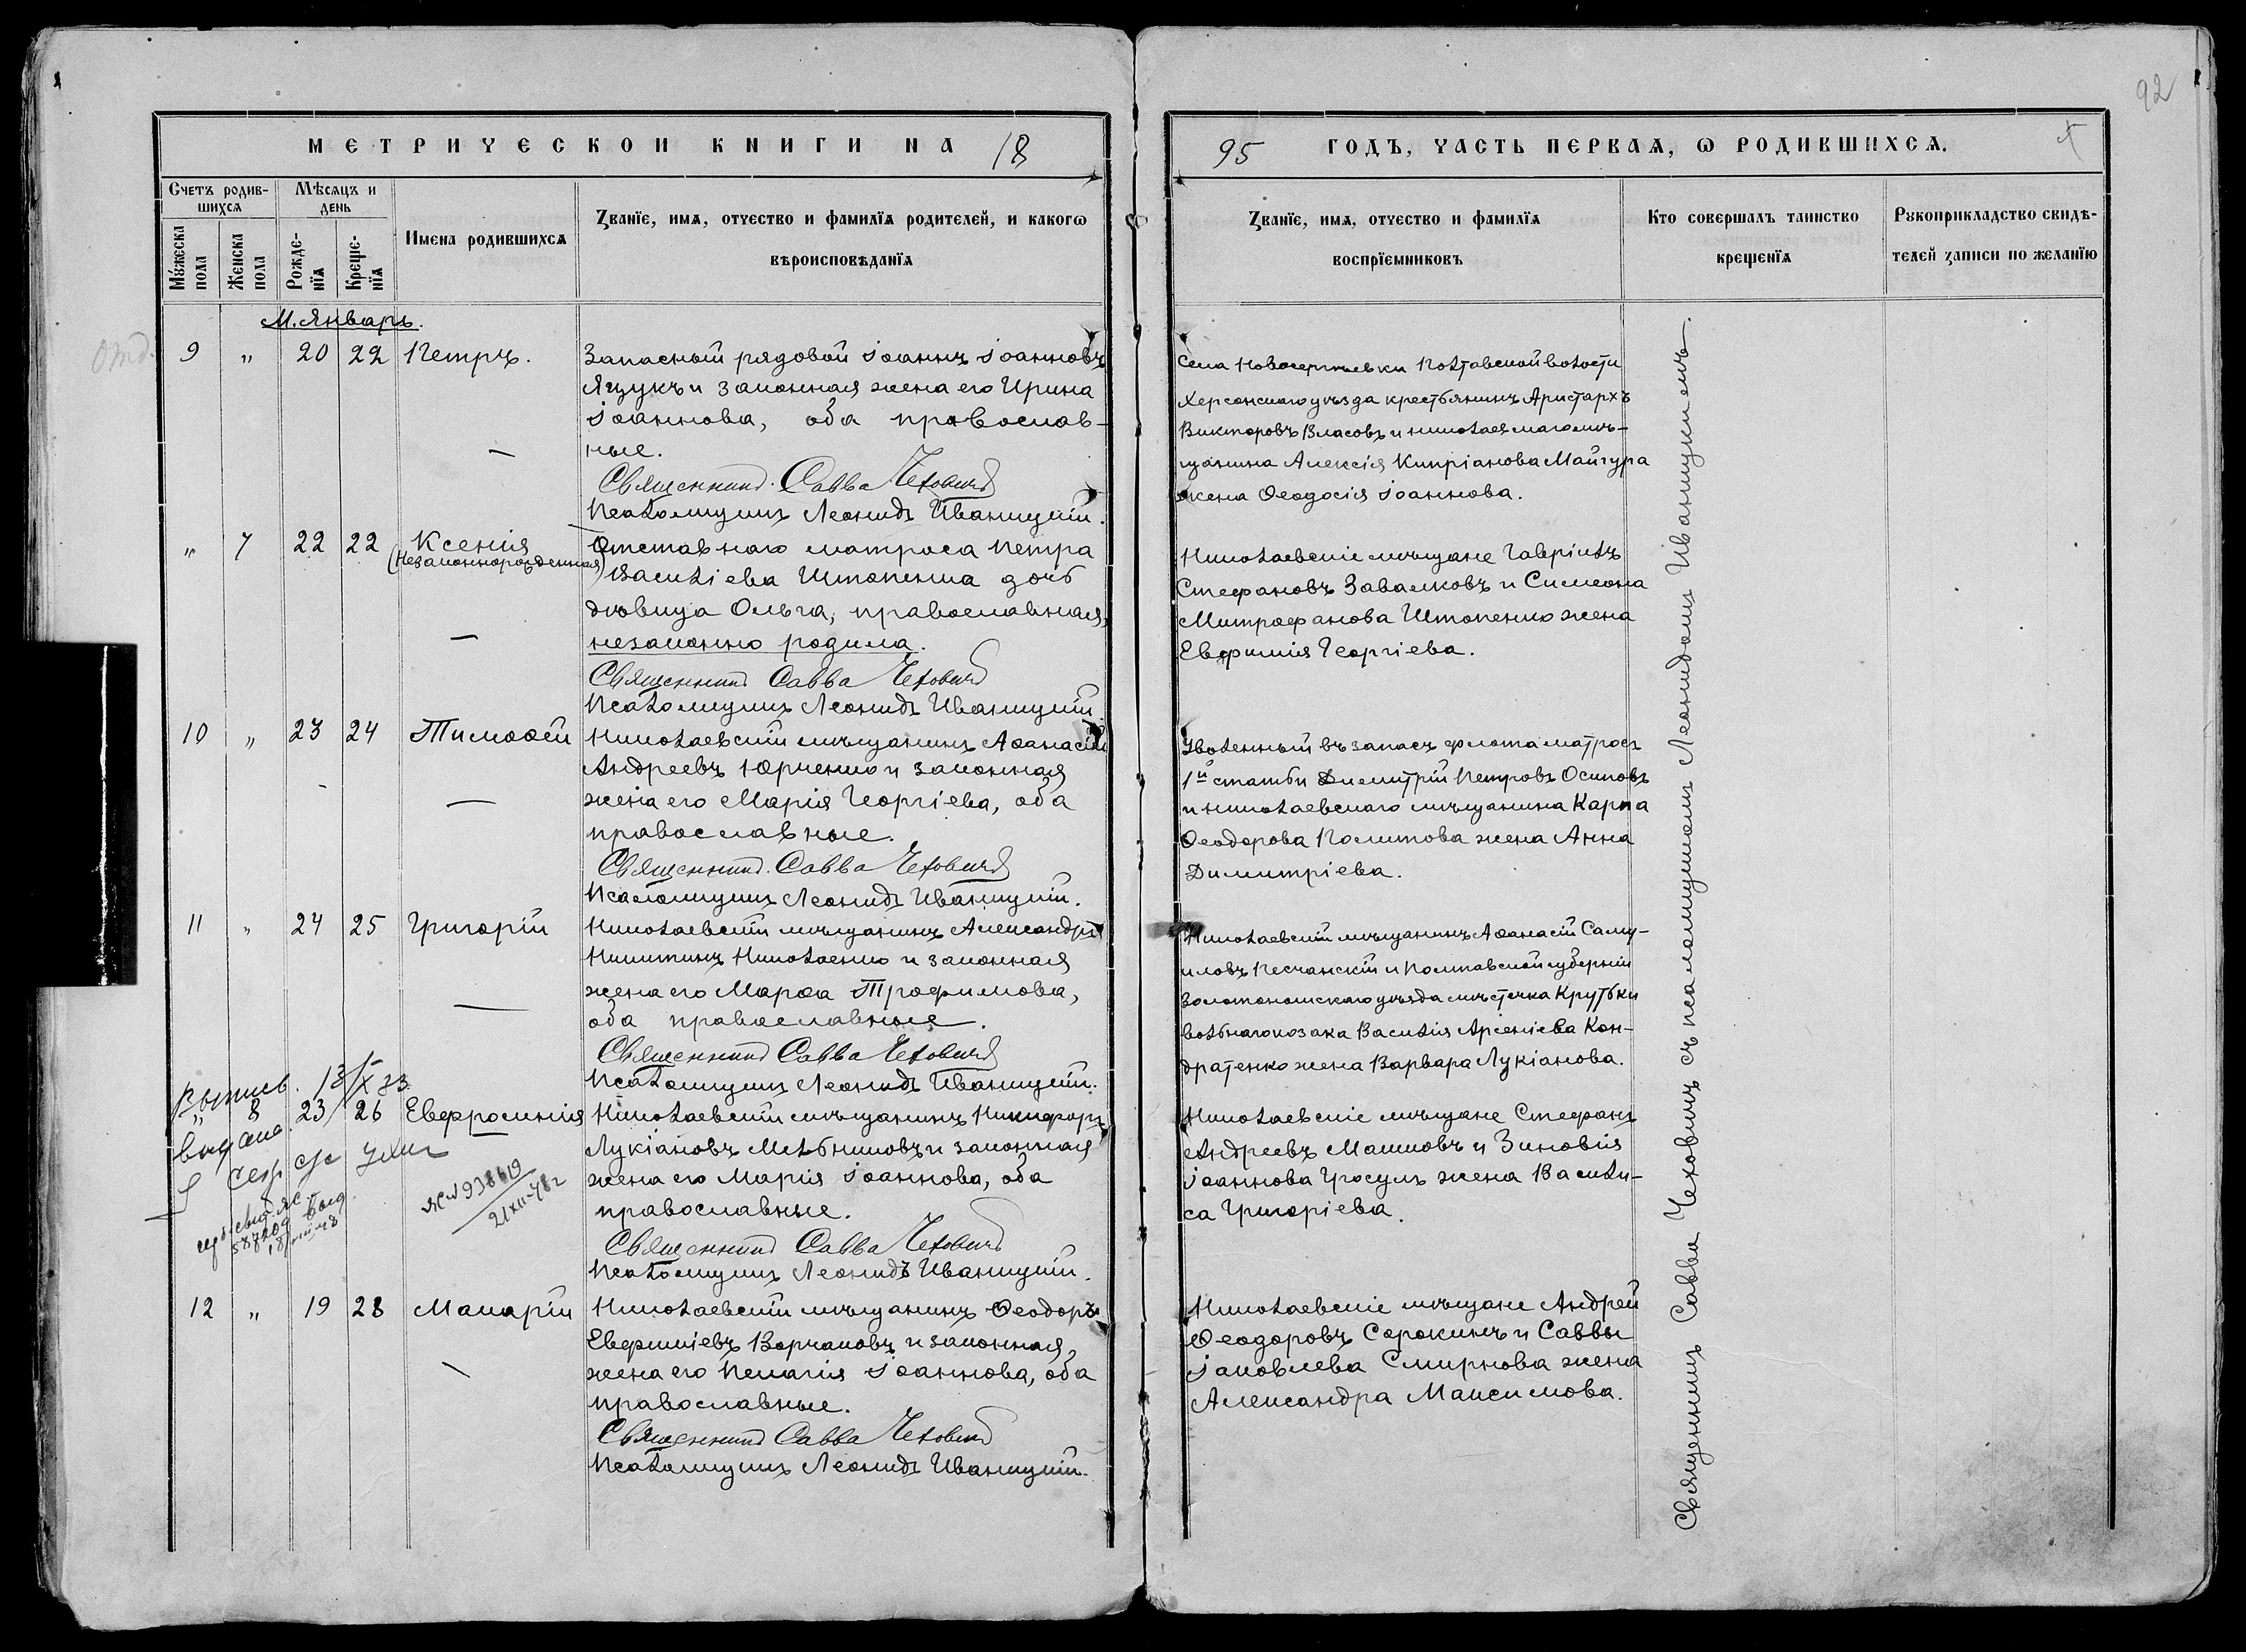 МЕТРИЧЕСКОЙ КНИГИ НА 18
Счетъ родив-
шихся
Мѣсяцъ и
день
Мужеска
пола
Женска
пола
Рожде-
нїя
Креще-
нїя
Имена родившихся
Званїе, имя, отчество и фамилїя родителей, и какогѡ
вѣроисповѣданїя
М. Январь.
9 " 20 22 Петръ.
Запасный рядовой Іоаннъ Іоанновъ
Ящукъ и законная жена его Ирина
Іоаннова, оба православ-
ные.
Священникъ Савва Чеховичъ
Псаломщикъ Леонидъ Иваницкій.
" 7 22 22 Ксенія
(Незаконнорожденная)
Отставного матроса Петра
Василіева Штопенка дочь
дѣвица Ольга, православная,
незаконно родила.
Священникъ Савва Чеховичъ
Псаломщикъ Леонидъ Иваницкій.
10 " 23 24 Тимоѳей
Николаевскій мѣщанинъ Аѳанасій
Андреевъ Юрченко и законная
жена его Марія Георгіева, оба
православные.
Священникъ Савва Чеховичъ
Псаломщикъ Леонидъ Иваницкій.
11 " 24 25 Григорій
Николаевскій мѣщанинъ Александръ
Никитинъ Николаенко и законная
жена его Марѳа Трофимова,
оба православные.
Священникъ Савва Чеховичъ
Псаломщикъ Леонидъ Иваницкій.
" 8 23 26 Евфросинія
Николаевскій мѣщанинъ Никифоръ
Лукіановъ Мельниковъ и законная
жена его Марія Іоаннова, оба
православные.
Священникъ Савва Чеховичъ
Псаломщикъ Леонидъ Иваницкій.
12 " 19 28 Макарій
Николаевскій мѣщанинъ Ѳеодоръ
Евфиміевъ Ворчаковъ и законная
жена его Пелагія Іоаннова, оба
православные.
Священникъ Савва Чеховичъ
Псаломщикъ Леонидъ Иваницкій.
92
95 ГОДЪ, ЧАСТЬ ПЕРВАЯ, Ѡ РОДИВШИХСЯ.
Званїе, имя, отчество и фамилїя
воспрїемниковъ
Кто совершалъ таинство
крещенїя
Рукоприкладство свидѣ-
телей записи по желанїю
Села Новосергѣевки Полтавской волости
Херсонскаго уѣзда крестьянинъ Аристархъ
Викторовъ Власовъ и николаевскаго мѣ-
щанина Алексія Кипріанова Майгура
жена Ѳеодосія Іоаннова.
Николаевскіе мѣщане Гавріилъ
Стефановъ Завалковъ и Симеона
Митрофанова Штопенко жена
Евфимія Георгіева.
Уволенный въ запасъ флота матросъ
1й статьи Димитрій Петровъ Осиповъ
и николаевскаго мѣщанина Карпа
Ѳеодорова Политова жена Анна
Димитріева.
Николаевскій мѣщанинъ Аѳанасій Саму-
иловъ Песчанскій и Полтавской губерніи
Золотоношскаго уѣзда мѣстечка Крутьки
вольнаго козака Василія Арсеніева Кон-
дратенко жена Варвара Лукіанова.
Николаевскіе мѣщане Стефанъ
Андреевъ Машковъ и Зиновія
Іоаннова Гросулъ жена Васили-
са Григоріева.
Николаевскіе мѣщане Андрей
Ѳеодоровъ Сорокинъ и Саввы
Іаковлева Смирнова жена
Александра Максимова.
Священникъ Савва Чеховичъ съ псаломщикомъ Леонидомъ Иваницкимъ.